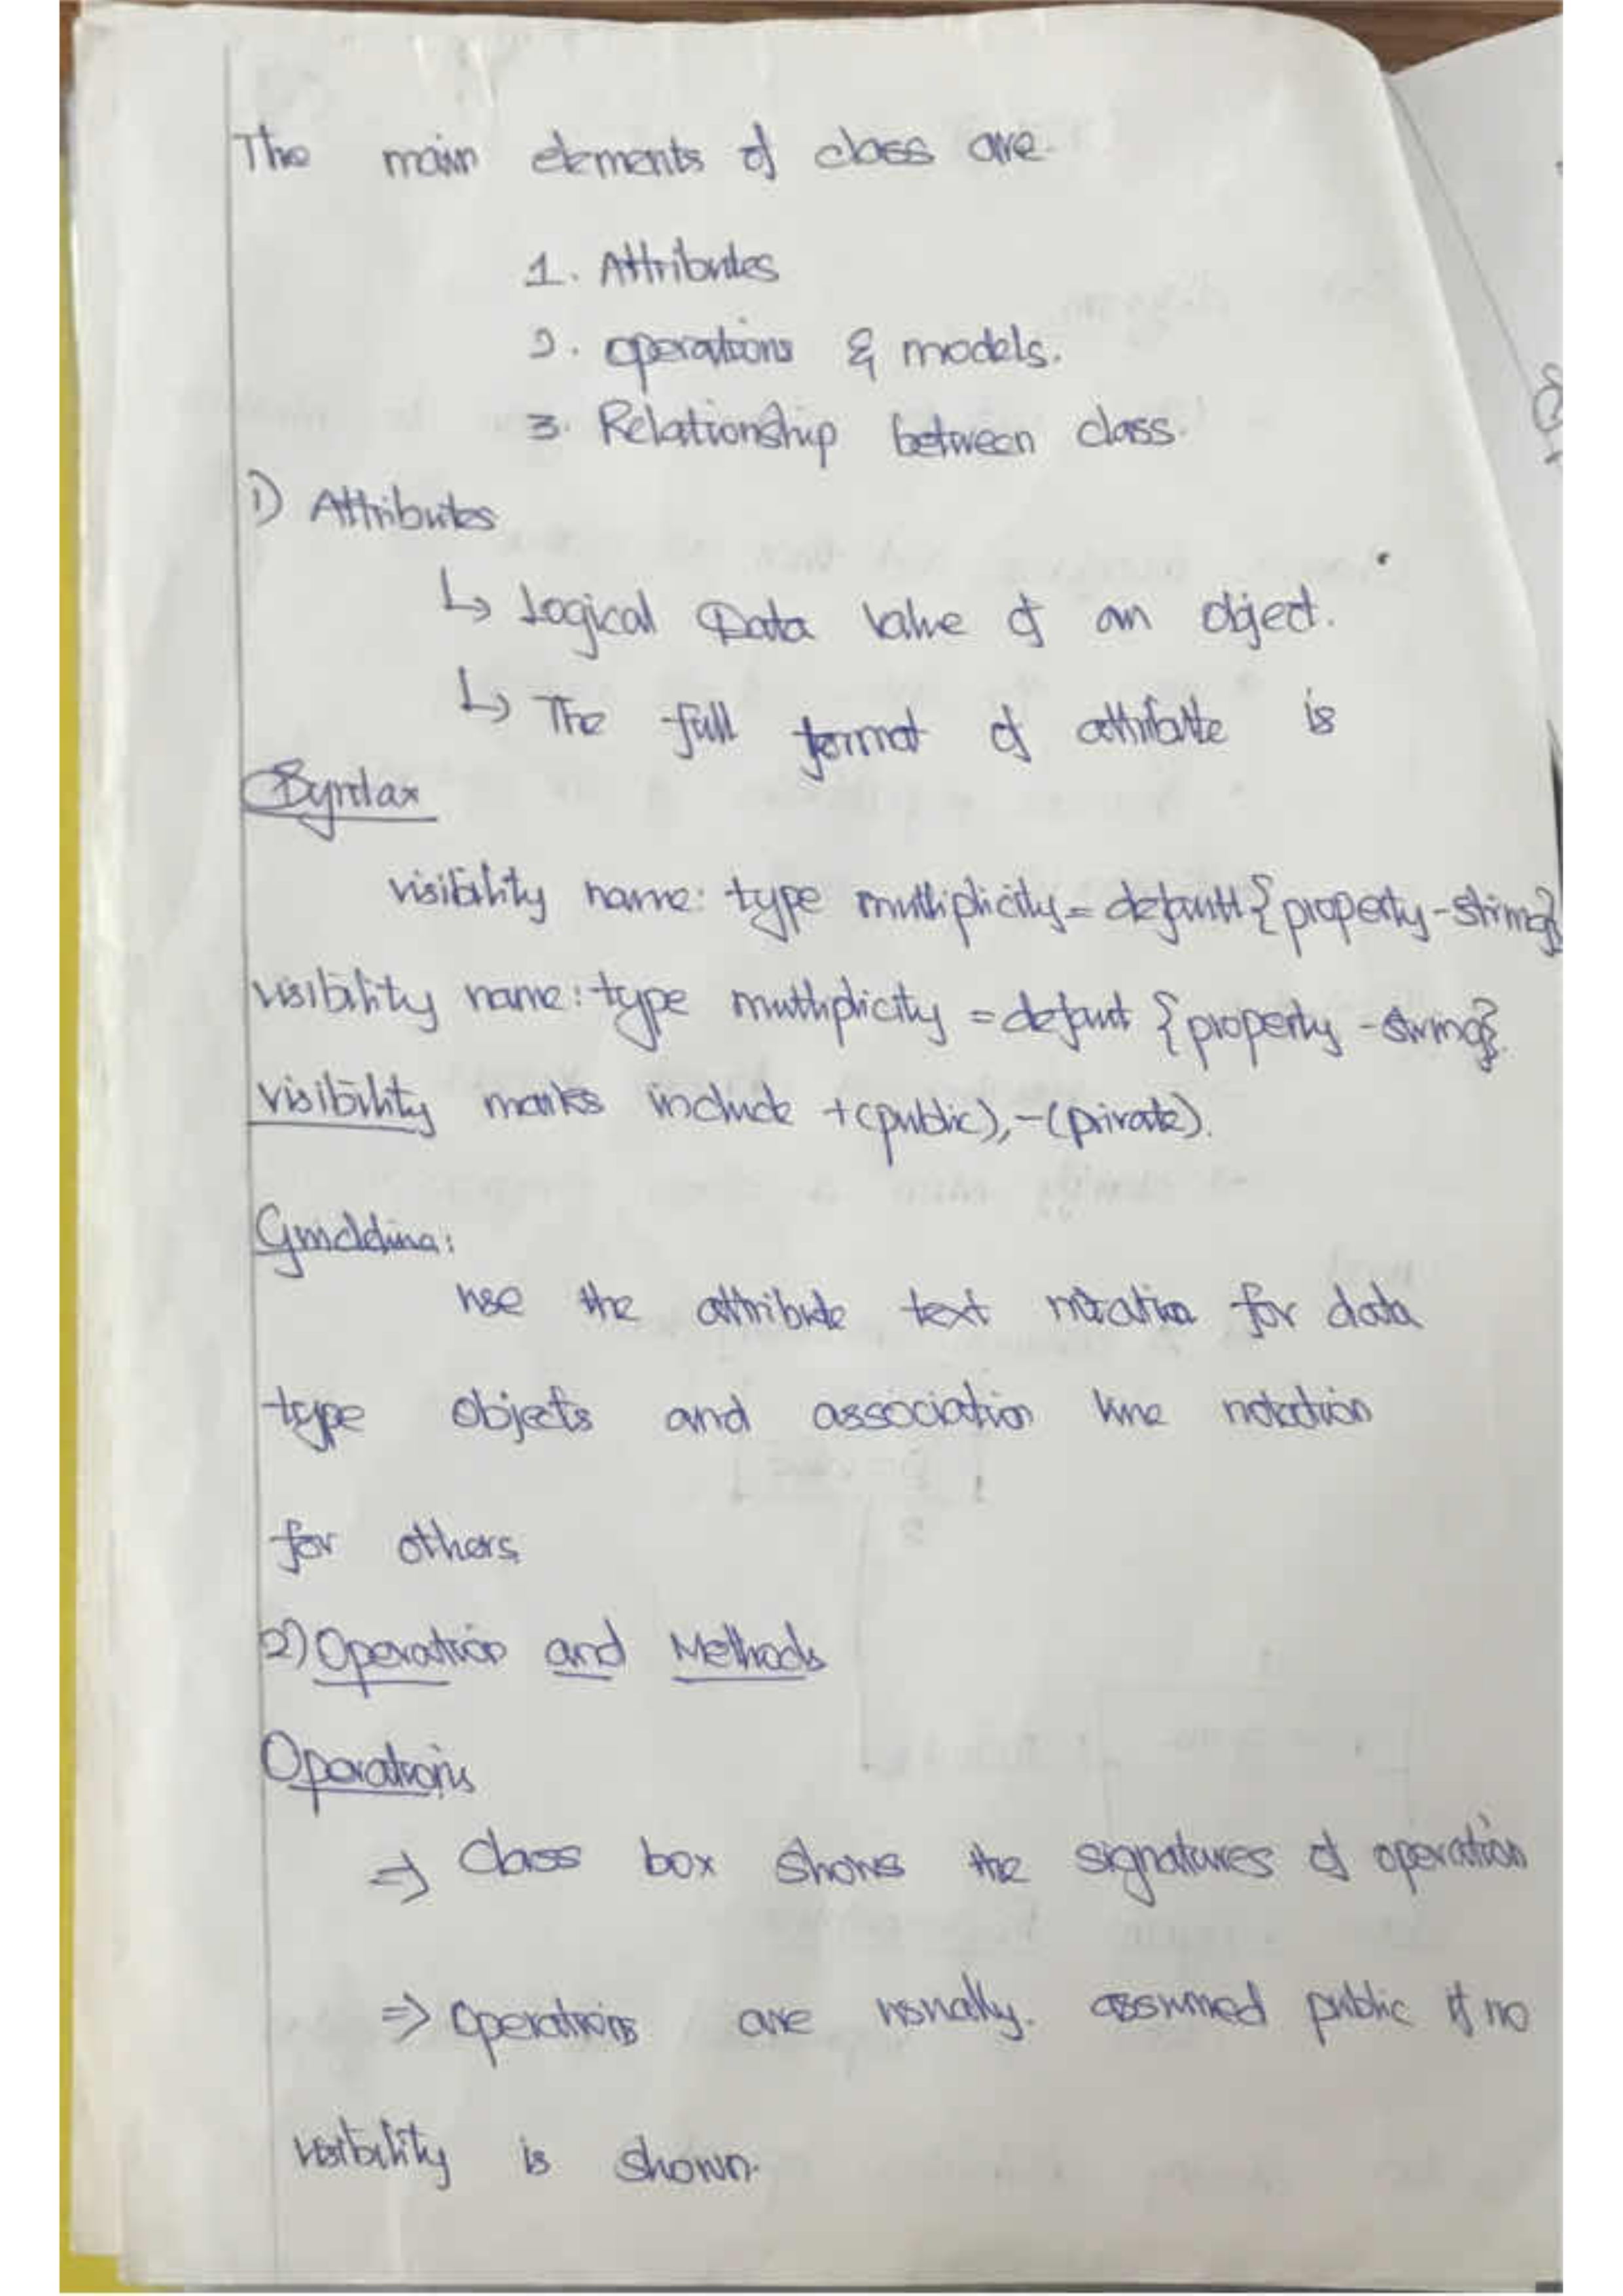 The main elements of class are.
1. Attributes
2. operations & models.
3. Relationship between class.
1) Attributes
↳ Logical Data value of an object.
↳ The full format of attribute is
Syntax
visibility name: type multiplicity = default {property-string}
visibility name: type multiplicity = default {property-string}.
visibility marks include +(public), -(private).
use the attribute text notation for data
type objects and association line notation
for others.
2) Operation and Methods
Operations
⇒ Class box shows the signatures of operation
⇒ Operations are usually. assumed public if no
visibility is shown.